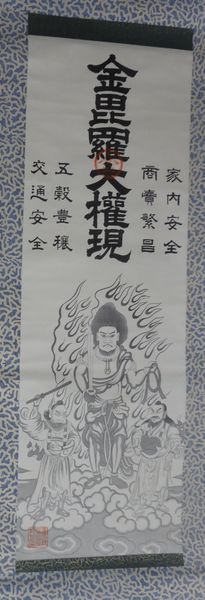 家內安全
商賣繁昌
金毘羅大權現
五穀豊穰
交通安全